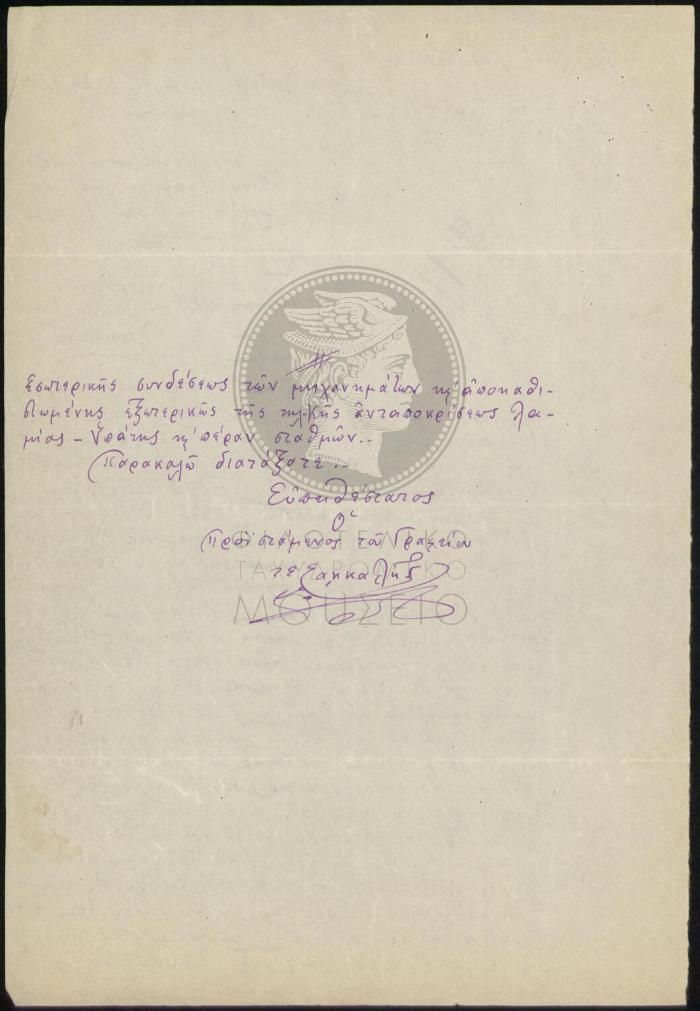 ἐσωτερικῆς συνδέσεως τῶν μηχανημάτων κ' ἀποκαθι-
σταμένης ἐξωτερικῶς τῆς τηλ-κῆς ἀνταποκρίσεως Λα-
μίας - Ὑπάτης κ' πέραν σταθμῶν.-
Παρακαλῶ διατάξατε.-
Εὐπειθέστατος
Ὁ
Προϊστάμενος τοῦ Γραφείου
ΦΙΛΟΤΕΛΙΚΟ
ΤΑΧΥΔΡΟΜΙΚΟ
ΜΟΥΣΕΙΟ